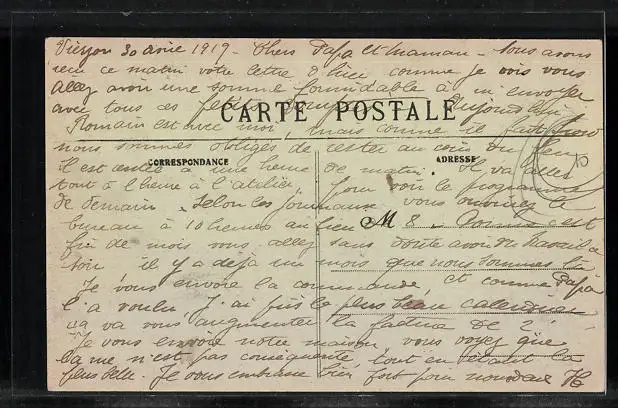 Vierzon 30 avril 1919 - Chers Papa et Maman - Nous avons
reçu ce matin votre lettre d'hier comme je vois vous
allez avoir une somme formidable à m'envoyer
avec tous ces petits Aujourd'hui
CARTE POSTALE
Romain est avec moi, mais comme il fait froid
nous sommes obligés de rester au coin du feu
CORRESPONDANCE
ADRESSE
Il est arrivé à une heure de matin. Il va aller
tout à l'heure à l'atelier, pour voir le programme
de demain. Selon les journaux vous ouvrirez le
bureau à 10 heures au lieu 8. Comme c'est
M
fin de mois vous allez sans doute avoir du travail
soir il y a déjà un mois que nous sommes
Je vous envoie la commande, et comme Papa
l'a voulu, j'ai pris le plus beau
ça va vous augmenter la facture de 2
Je vous envoie notre maison, vous voyez que
ça me n'est pas conséquente, tout en étant la
plus belle. Je vous embrasse bien fort pour